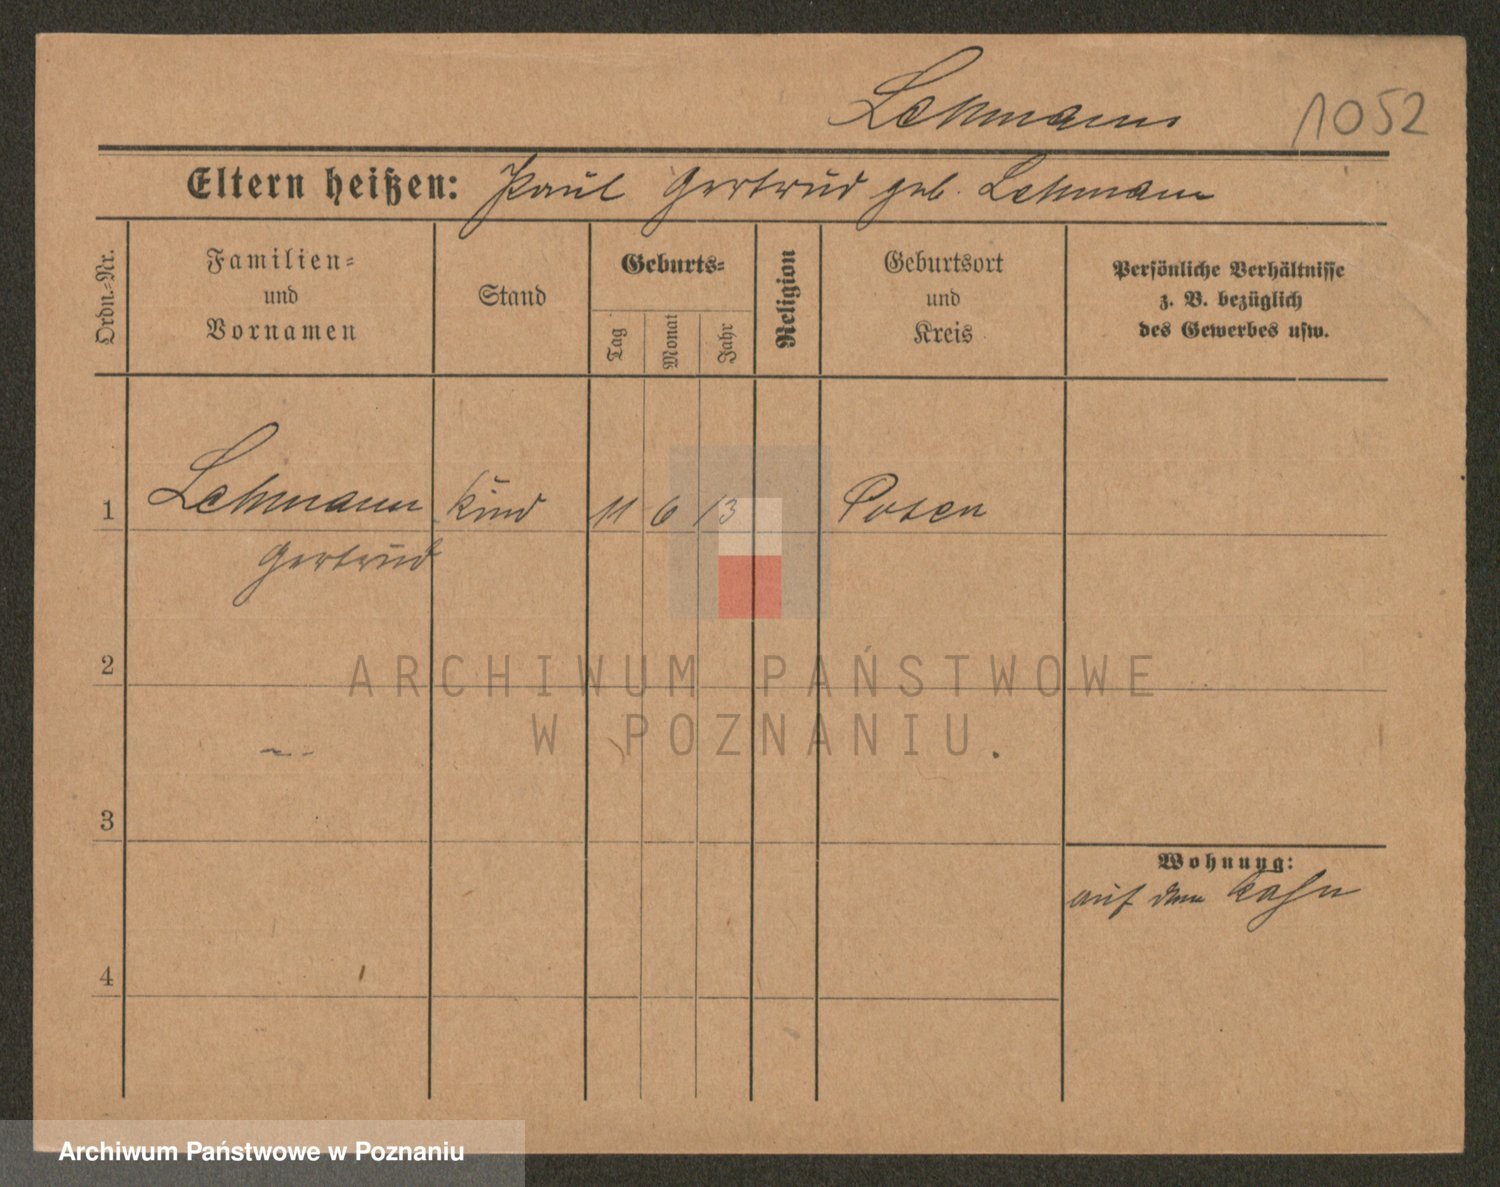 Lehmann 1052
Eltern heißen: Paul Gertrud geb. Lehmann
Ordn.-Nr.
Familien-
und
Vornamen
Stand
Geburts-
Tag
Monat
Jahr
Religion
Geburtsort
und
Kreis
Persönliche Verhältnisse
z. B. bezüglich
des Gewerbes usw.
1 Lehmann Kind 11 6 13 Posen
Gertrud
2
ARCHIWUM PAŃSTWOWE
W POZNANIU
3
Wohnung:
auf dem Kahn
4
Archiwum Państwowe w Poznaniu